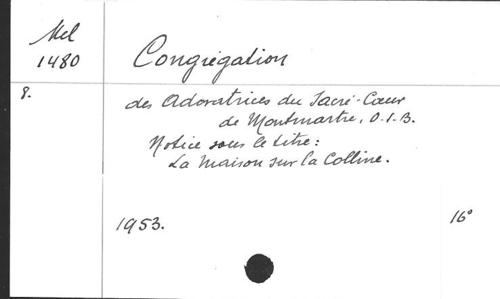 Mel
1480
Congrégation
8.
des Adoratrices du Sacré-Cœur
de Montmartre, O.S.B.
Notice sous le titre:
La Maison sur la Colline.
1953.
16°